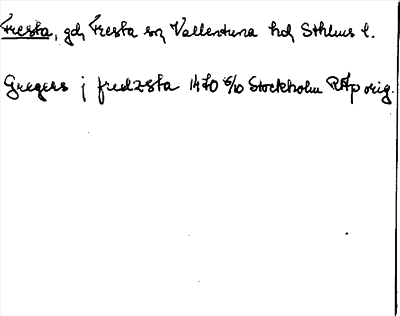 Fresta, gd, Fresta sn, Vallentuna hd, Sthlms l.
Gregers j fredzsta 1470 6/10 Stockholm RAp orig.